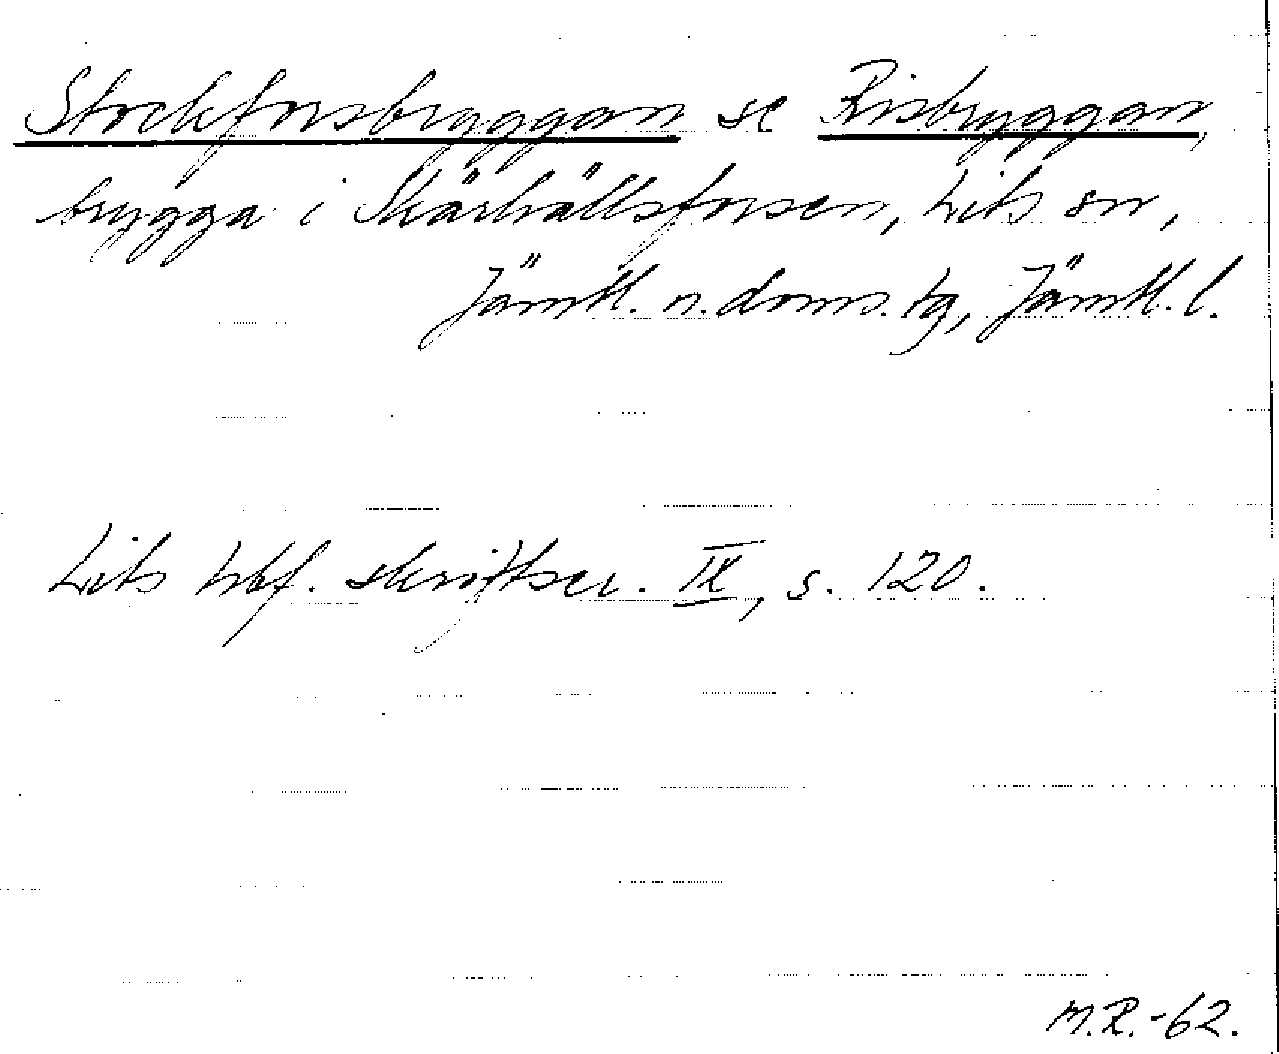 Stockforsbryggan se Risbryggan,
brygga i Skärhällsforsen, Lits sn,
Jämtl. n. doms. tg, Jämtl. l.
Lits hbf. skriftser. IX, s. 120.
M.R.-62.